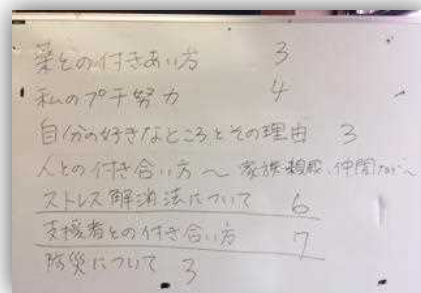 薬との付きあい方 3
私のプチ努力 4
自分の好きなところとその理由 3
人との付き合い方 ~ 家族・親戚、仲間など~
ストレス解消法について 6
支援者との付き合い方 7
防災について 3